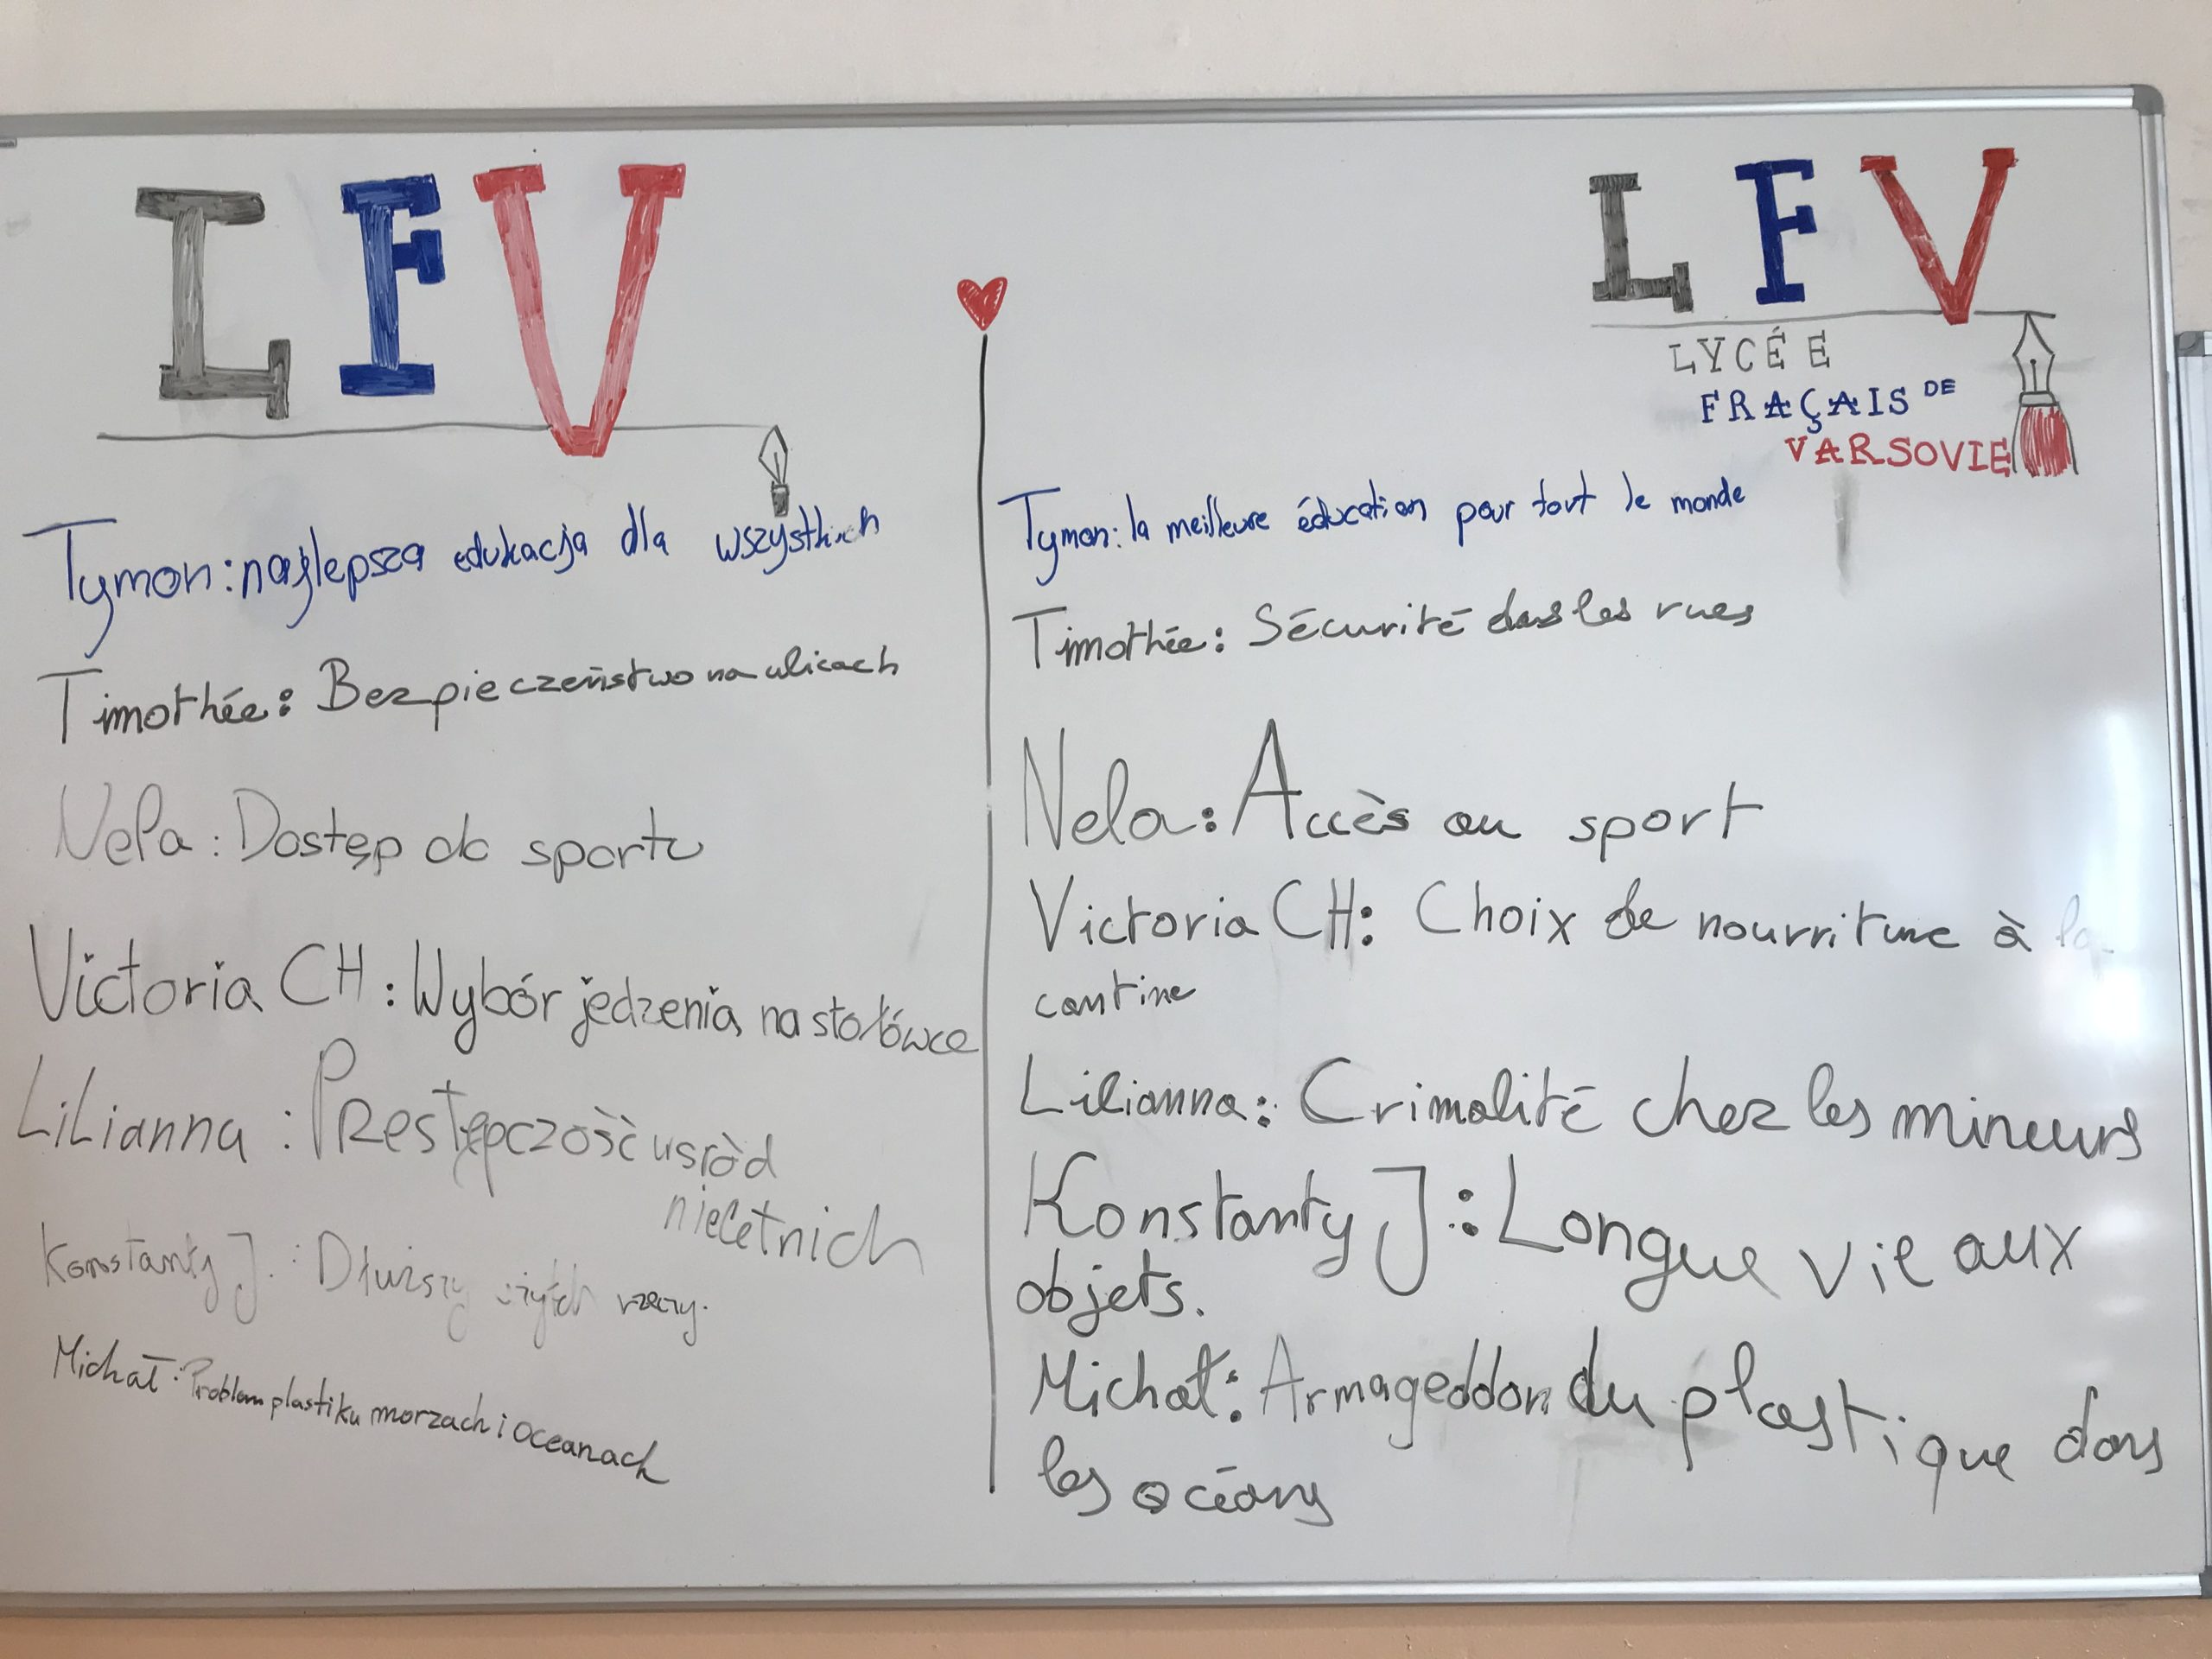 LFV
Tymon: najlepsza edukacja dla wszystkich
Timothée: Bezpieczeństwo na ulicach
Nela: Dostęp do sportu
Victoria CH: Wybór jedzenia na stołówce
LiLianna: PRzestępczość wsród
nieletnich
Konstanty J.: rzeczy.
Michał: Problem plastiku morzach i oceanach
LFV
LYCÉE
FRAÇAIS DE
VARSOVIE
Tymon: la meilleure éducation pour tout le monde
Timothée: Sécurité dans les rues
Nela: Accès au sport
Victoria CH: Choix de nourriture à la
cantine
Lilianna: Crimalité chez les mineurs
Konstanty J.: Longue vie aux
objets.
Michał: Armageddon du plastique dans
les océans